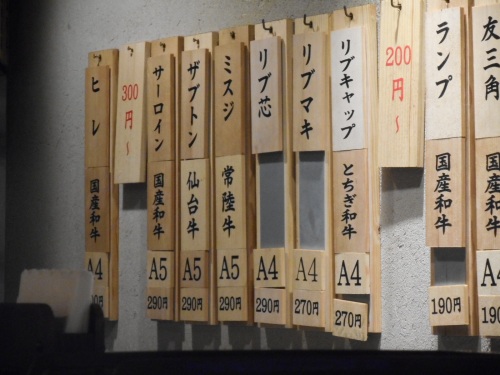 ヒレ
国産和牛
A4
300円〜
サーロイン
国産和牛
A5
290円
ザブトン
仙台牛
A5
290円
ミスジ
常陸牛
A5
290円
リブ芯
A4
290円
リブマキ
A4
270円
リブキャップ
とちぎ和牛
A4
270円
200円〜
ランプ
国産和牛
A4
190円
友三角
国産和牛
A4